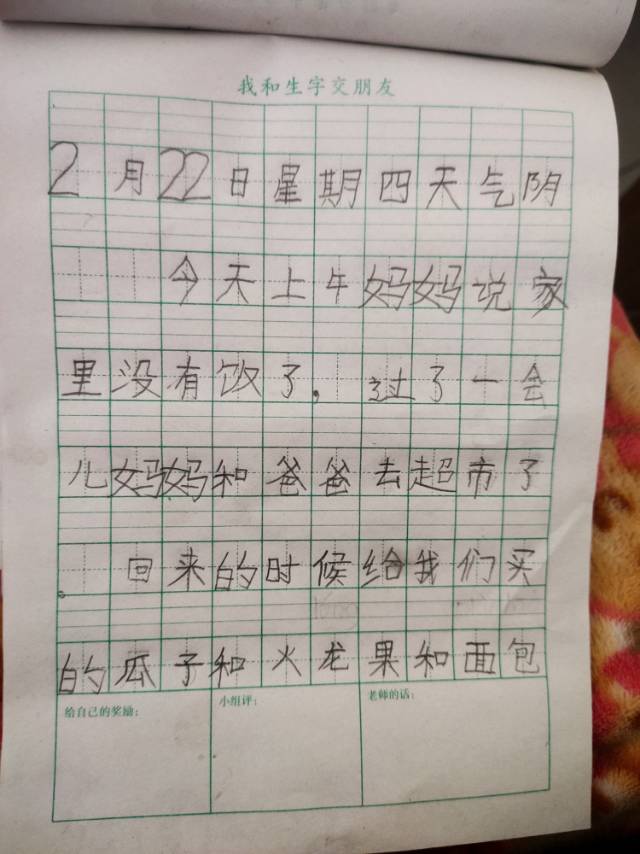 我和生字交朋友
2月22日星期四天气阴
今天上午妈妈说家
里没有饮了，过了一会
儿妈妈和爸爸去超市了
。回来的时候给我们买
的瓜子和火龙果和面包
给自己的奖励：
小组评：
老师的话：